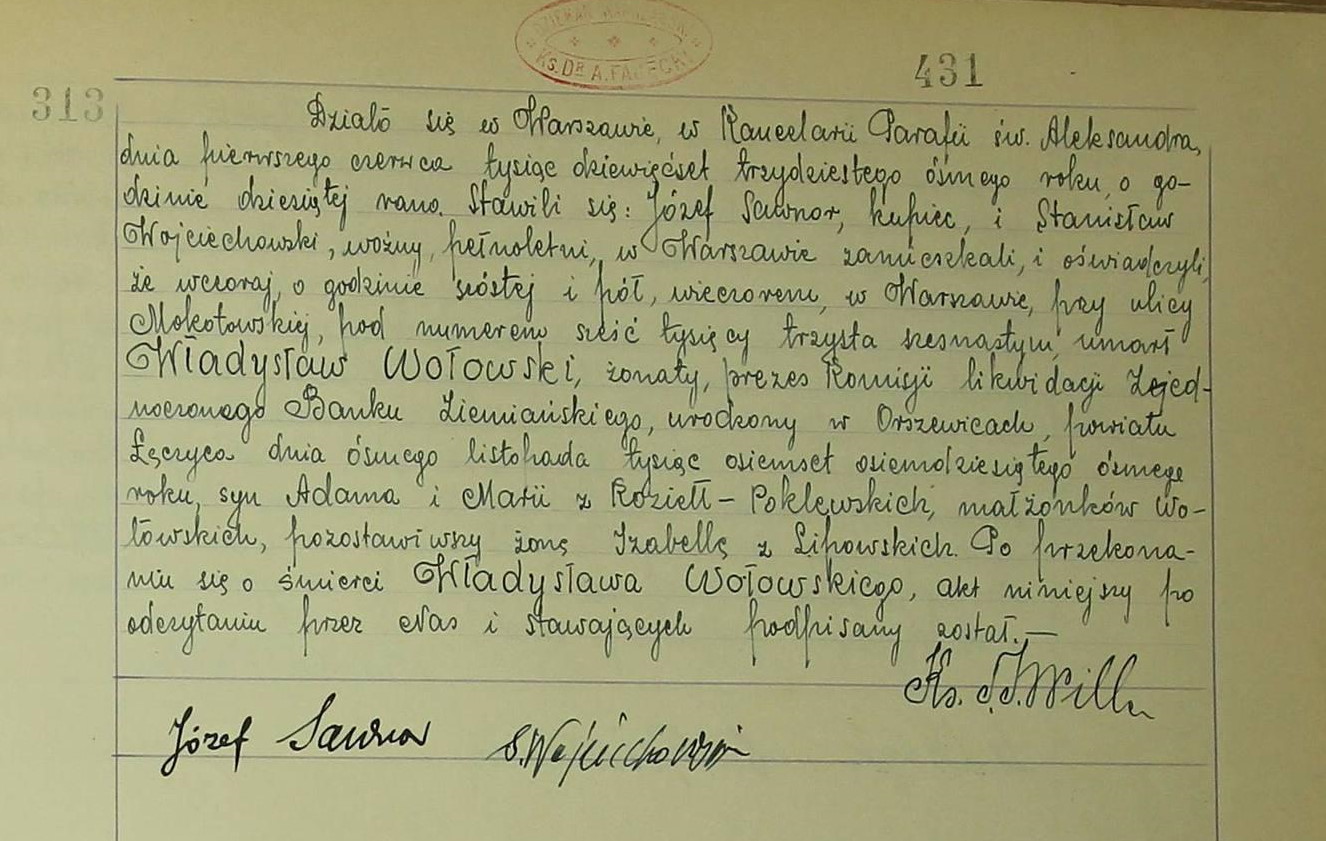 DZIEKAN WARSZAWSKI
Ks. DR A. FAJĘCKI
431
313
Działo się w Warszawie, w Kancelarii Parafii św. Aleksandra,
dnia pierwszego czerwca tysiąc dziewięćset trzydziestego ósmego roku, o go-
dzinie dziesiątej rano. Stawili się: Józef Sawnor, kupiec, i Stanisław
Wojciechowski, woźny, pełnoletni, w Warszawie zamieszkali, i oświadczyli,
że wczoraj, o godzinie szóstej i pół, wieczorem, w Warszawie, przy ulicy
Mokotowskiej, pod numerem sześć tysięcy trzysta szesnastym, umarł
Władysław Wołowski, żonaty, prezes Komisji likwidacji Zjed-
noczonego Banku Ziemiańskiego, urodzony w Orszewicach, powiatu
Łęczyca dnia ósmego listopada tysiąc osiemset osiemdziesiątego ósmego
roku, syn Adama i Marii z Koziełł-Poklewskich, małżonków Wo-
łowskich, pozostawiwszy żonę Izabellę z Lipowskich. Po przekona-
niu się o śmierci Władysława Wołowskiego, akt niniejszy po
odczytaniu przez Nas i stawających podpisany został.—
Ks.
Józef Sawnor S. Wojciechowski